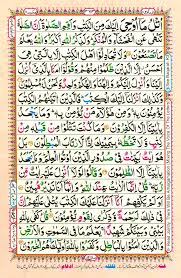 اُتْلُ مَاۤ اُوْحِیَ اِلَیْكَ مِنَ الْكِتٰبِ وَ اَقِمِ الصَّلٰوةَ ؕ اِنَّ الصَّلٰوةَ
تَنْهٰی عَنِ الْفَحْشَآءِ وَ الْمُنْكَرِ ؕ وَ لَذِكْرُ اللّٰهِ اَكْبَرُ ؕ وَ اللّٰهُ یَعْلَمُ
مَا تَصْنَعُوْنَ وَ لَا تُجَادِلُوْۤا اَهْلَ الْكِتٰبِ اِلَّا بِالَّتِیْ هِیَ
اَحْسَنُ ۖ اِلَّا الَّذِیْنَ ظَلَمُوْا مِنْهُمْ وَ قُوْلُوْۤا اٰمَنَّا بِالَّذِیْۤ اُنْزِلَ
اِلَیْنَا وَ اُنْزِلَ اِلَیْكُمْ وَ اِلٰهُنَا وَ اِلٰهُكُمْ وَاحِدٌ وَّ نَحْنُ لَهٗ
مُسْلِمُوْنَ وَ كَذٰلِكَ اَنْزَلْنَاۤ اِلَیْكَ الْكِتٰبَ ؕ فَالَّذِیْنَ اٰتَیْنٰهُمُ الْكِتٰبَ
یُؤْمِنُوْنَ بِهٖ ۚ وَ مِنْ هٰۤؤُلَآءِ مَنْ یُّؤْمِنُ بِهٖ ؕ وَ مَا یَجْحَدُ بِاٰیٰتِنَاۤ
اِلَّا الْكٰفِرُوْنَ وَ مَا كُنْتَ تَتْلُوْا مِنْ قَبْلِهٖ مِنْ كِتٰبٍ وَّ لَا
تَخُطُّهٗ بِیَمِیْنِكَ اِذًا لَّارْتَابَ الْمُبْطِلُوْنَ بَلْ
هُوَ اٰیٰتٌۢ بَیِّنٰتٌ فِیْ صُدُوْرِ الَّذِیْنَ اُوْتُوا الْعِلْمَ ؕ وَ مَا
یَجْحَدُ بِاٰیٰتِنَاۤ اِلَّا الظّٰلِمُوْنَ وَ قَالُوْا لَوْ لَاۤ اُنْزِلَ عَلَیْهِ
اٰیٰتٌ مِّنْ رَّبِّهٖ ؕ قُلْ اِنَّمَا الْاٰیٰتُ عِنْدَ اللّٰهِ ؕ وَ اِنَّمَاۤ اَنَا نَذِیْرٌ
مُّبِیْنٌ اَوَ لَمْ یَكْفِهِمْ اَنَّاۤ اَنْزَلْنَا عَلَیْكَ الْكِتٰبَ یُتْلٰی عَلَیْهِمْ ؕ اِنَّ
فِیْ ذٰلِكَ لَرَحْمَةً وَّ ذِكْرٰی لِقَوْمٍ یُّؤْمِنُوْنَ قُلْ كَفٰی
بِاللّٰهِ بَیْنِیْ وَ بَیْنَكُمْ شَهِیْدًا ۚ یَعْلَمُ مَا فِی السَّمٰوٰتِ وَ الْاَرْضِ ؕ
وَ الَّذِیْنَ اٰمَنُوْا بِالْبَاطِلِ وَ كَفَرُوْا بِاللّٰهِ ۙ اُولٰٓىِٕكَ هُمُ